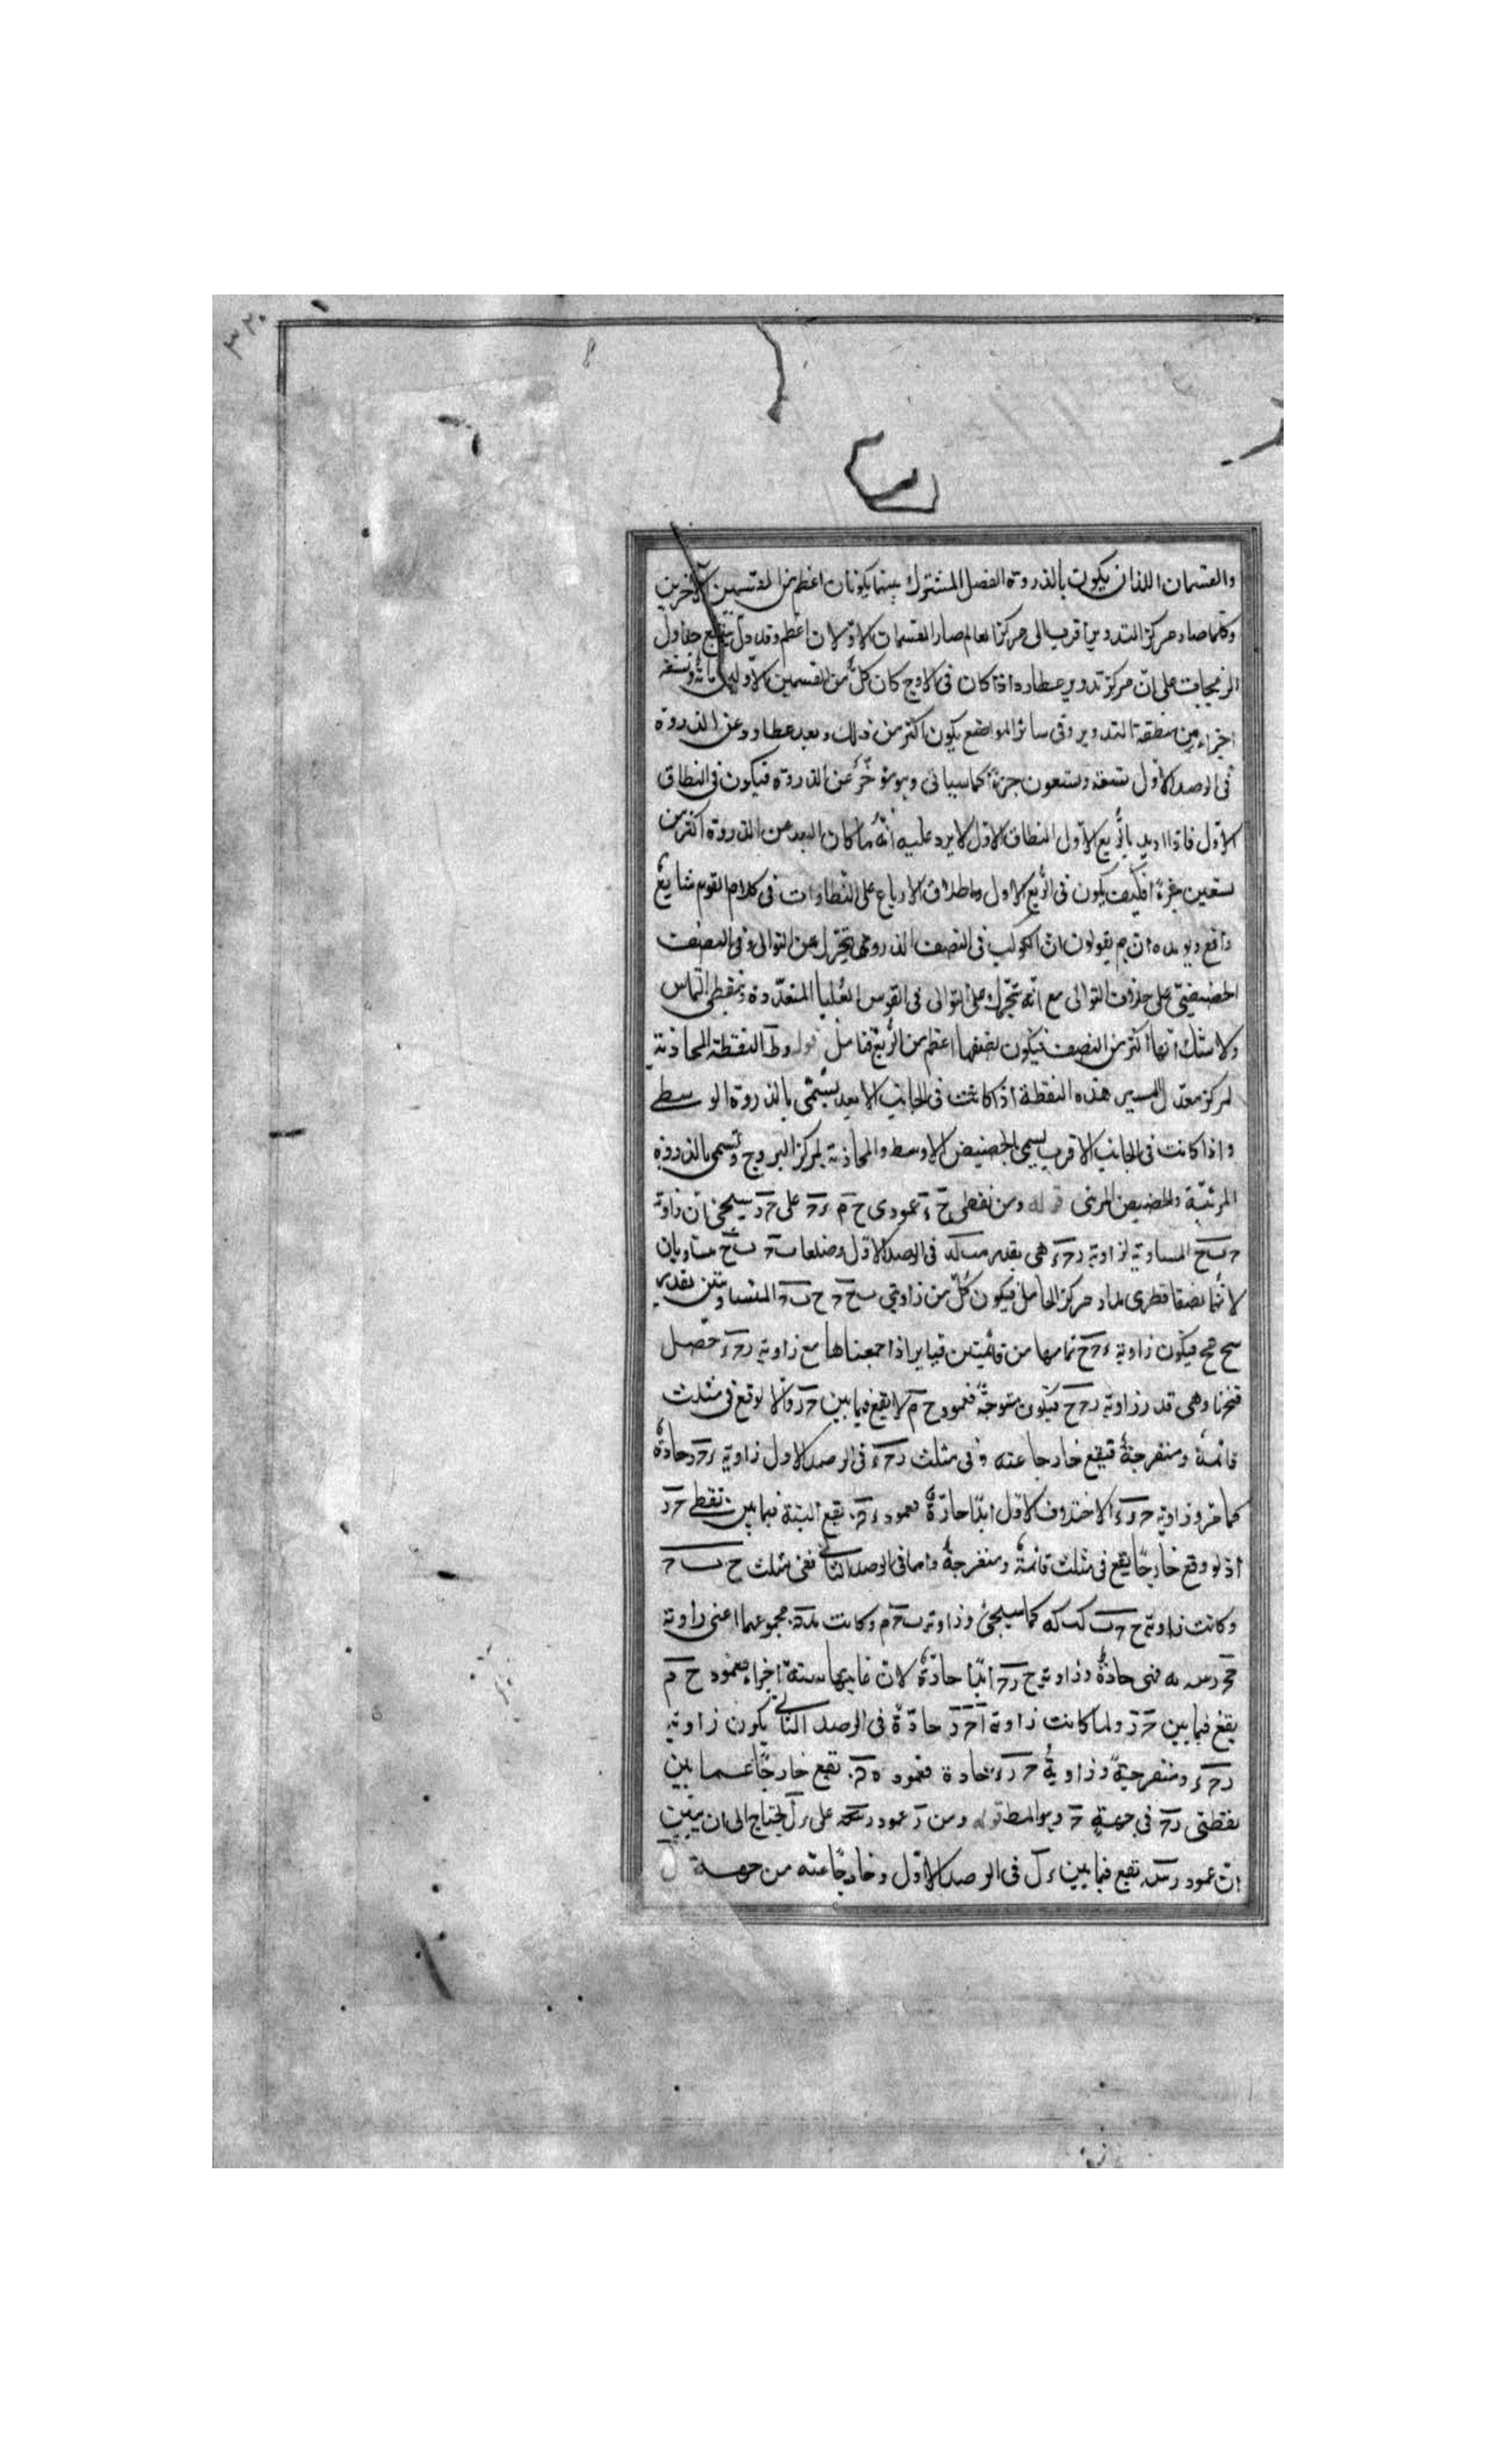 ٣٢٠
والقسمان اللذان يكون بالذروة الفصل المشترك بينهما يكونان اعظم من القسمين الآخرين
وكلما صار مركز التدوير اقرب الى مركز العالم صار القسمان الاولان اعظم وقد دل جداول
الزيجات على ان مركز تدوير عطارد اذا كان فى الاوج كان كل من القسمين الاولين مائة وتسعة
اجزاء من منطقة التدوير وفى سائر المواضع يكون اكثر من ذلك وبعد عطارد عن الذروة
فى الرصد الاول تسعة وتسعون جزءً كما سياتى وهو مؤخر عن الذروة فيكون فى النطاق
الاول فاذا اريد بالربع الاول النطاق الاول لا يرد عليه انه ما كان البعد عن الذروة اكثر من
تسعين جزءً فكيف يكون فى الربع الاول واطلاق الارباع على النطاقات فى كلام القوم شايع
واقع ويويده انهم يقولون ان الكوكب فى النصف الذروى يتحرك عن التوالى وفى النصف
الحضيضى على خلاف التوالى مع انه يتحرك على التوالى فى القوس العليا بنقطتى التماس
ولا شك انها اكثر من النصف فيكون نصفها اعظم من الربع فتامل قوله وط النقطة المحاذية
لمركز معدل المسير هذه النقطة اذا كانت فى الجانب الابعد يسمى بالذروة الوسطى
واذا كانت فى الجانب الاقرب يسمى بالحضيض الاوسط والمحاذية لمركز البروج وتسمى بالذروة
المرئية والحضيض المرئى قوله ومن نقطتى ح ء عمودى ح م على ح د سيجئ ان زاوية
ح ب ح المساوية لزاوية د ح ء هى بقدر فى الرصد الاول وضلعا ب ح ب ح متساويان
لانهما نصفا قطرى مدار مركز الحامل فيكون كل من زاويتى ب ح ح ح ب ح المتساويتين بقدر
فيكون زاوية ء ح ح تمامها من قائمتين اذا جمعناها مع زاوية د ح ء حصل
وهى قدر زاوية د ح ح فيكون منفرجة فعمود ح م لا يقع فيما بين ح د والا لوقع فى مثلث
قائمة ومنفرجة فيقع خارجا عنه وفى مثلث د ح ء فى الرصد الاول زاوية ء ح د حادة
كما مر وزاوية ح د ء الاختلاف الاول ابدًا حادة فعمود يقع البتة فيما بين نقطتى ح د
اذ لو وقع خارجًا يقع فى مثلث قائمة ومنفرجة واما فى الرصد الثانى ففى مثلث ح ب ح
وكانت زاوية ح ح ب كب كه كما سيجئ وزاوية ب ح م وكانت مجموعهما اعنى زاوية
فهى حادة وزاوية ح د ح ابدًا حادة لان غايتها ستة اجزاء فعمود ح م
يقع فيما بين ح د ولما كانت زاوية ا ح د حادة فى الرصد الثانى يكون زاوية
د ح ء منفرجة وزاوية ح د ء حادة فعمود يقع خارجًا عما بين
نقطتى د ح فى جهة ح وهو المط قوله ومن ر عمود رس على ء ل يحتاج الى ان يتبين
ان عمود رس يقع فيما بين ء ل فى الرصد الاول وخارجًا عنه من جهة ل